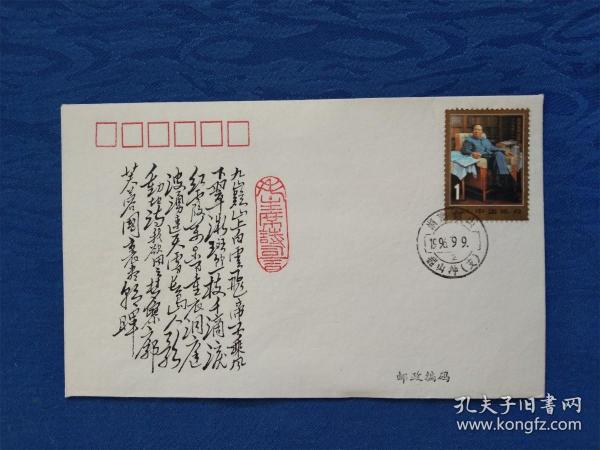 九嶷山上白雲飛帝子乘風
下翠微斑竹一枝千滴淚
紅霞万朵百重衣洞庭
波涌連天雪長島人歌
動地詩我欲因之夢寥廓
芙蓉國裏盡朝暉
1
中国邮政
1996.9.9.
韶山冲(支)
邮政编码
孔夫子旧书网
www.kongfz.com